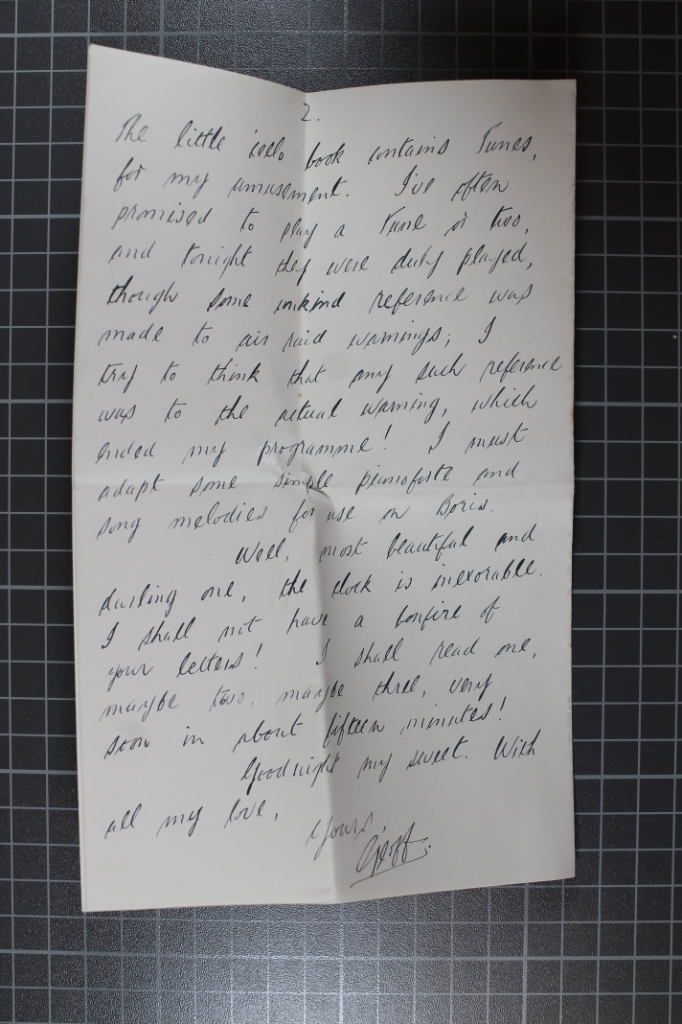 2.
The little 'cello book contains Tunes,
for my amusement. I've often
promised to play a Tune or two,
and tonight they were duly played,
though some unkind reference was
made to air raid warnings; I
try to think that any such reference
was to the actual warning, which
ended my programme! I must
adapt some simple pianoforte and
song melodies for use on Boris.
Well, most beautiful and
darling one, the clock is inexorable.
I shall not have a bonfire of
your letters! I shall read one,
maybe two, maybe three, very
soon in about fifteen minutes!
Goodnight my sweet. With
all my love,
Yours,
Geoff.